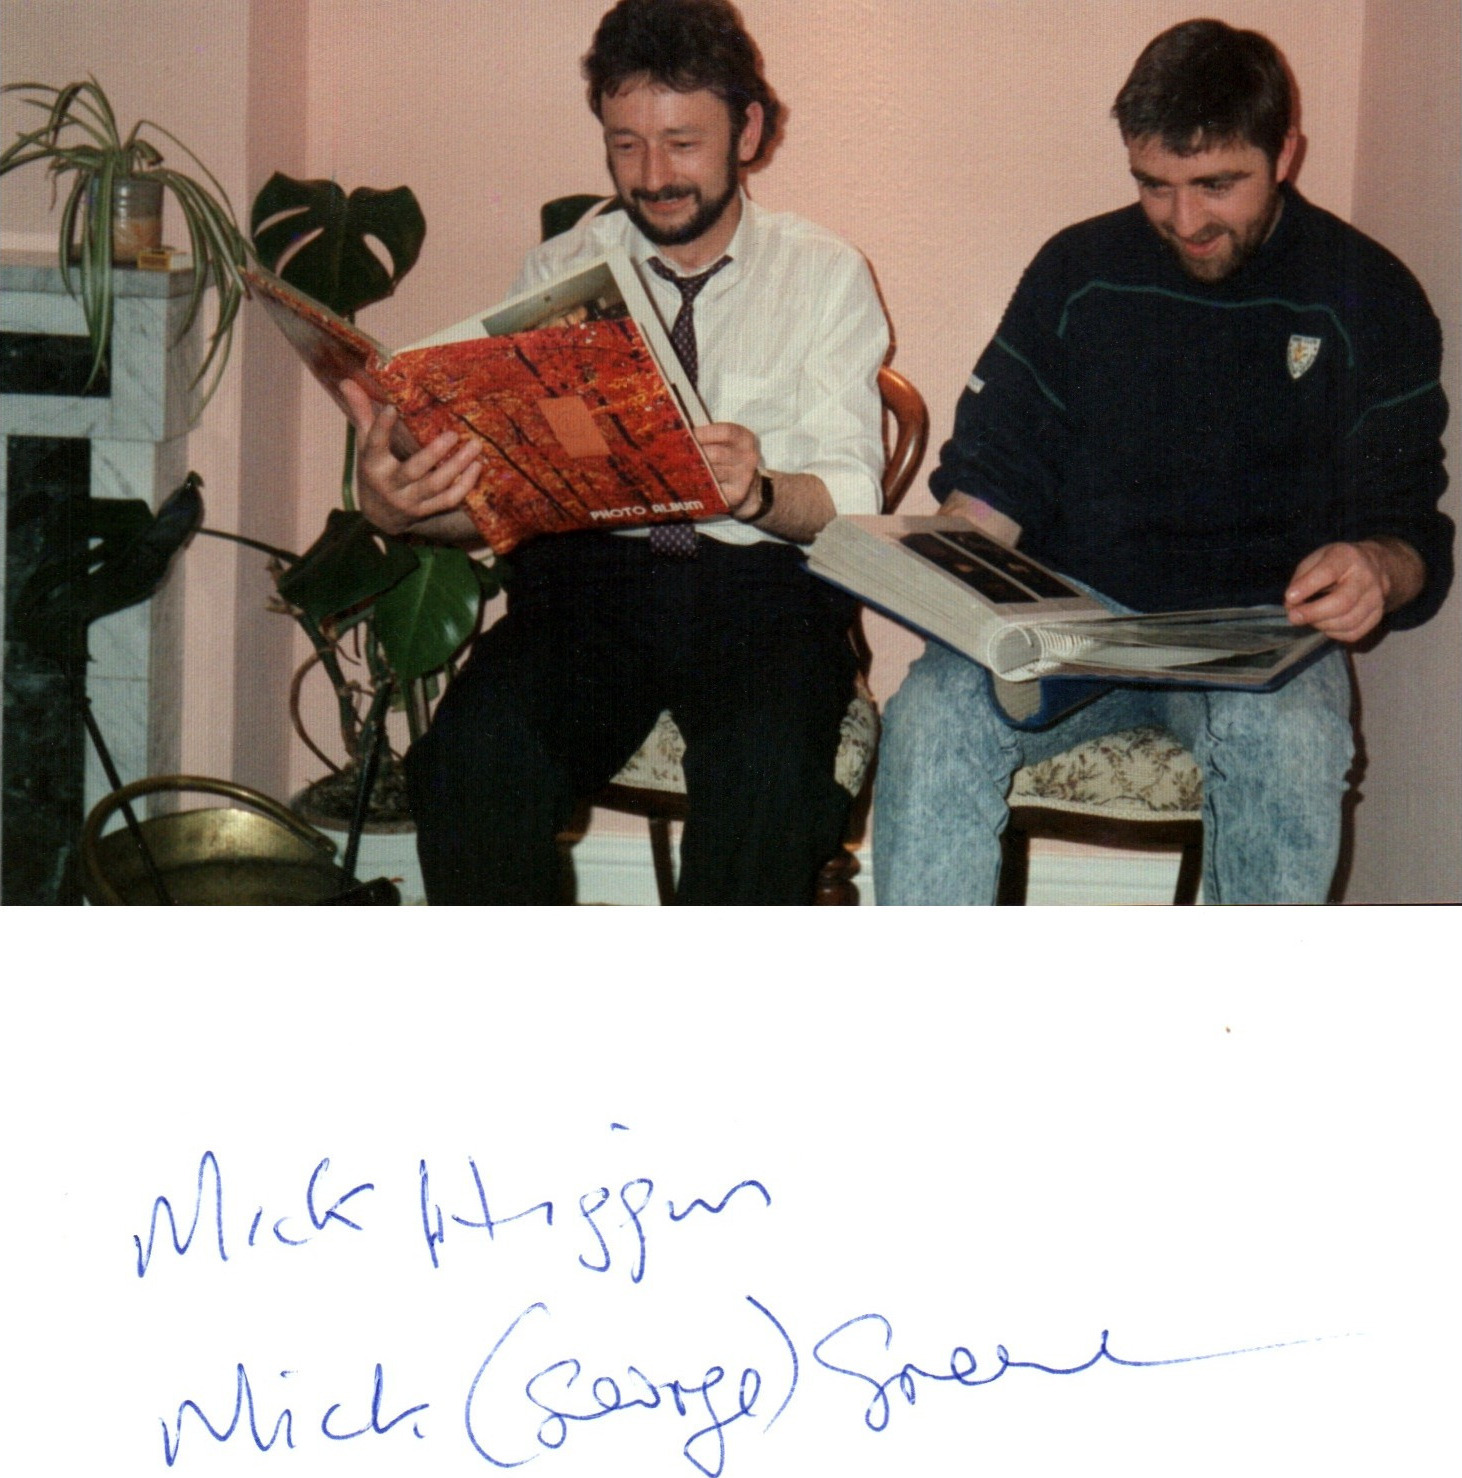 PHOTO ALBUM
Mick Higgins
Mick (George) Greene